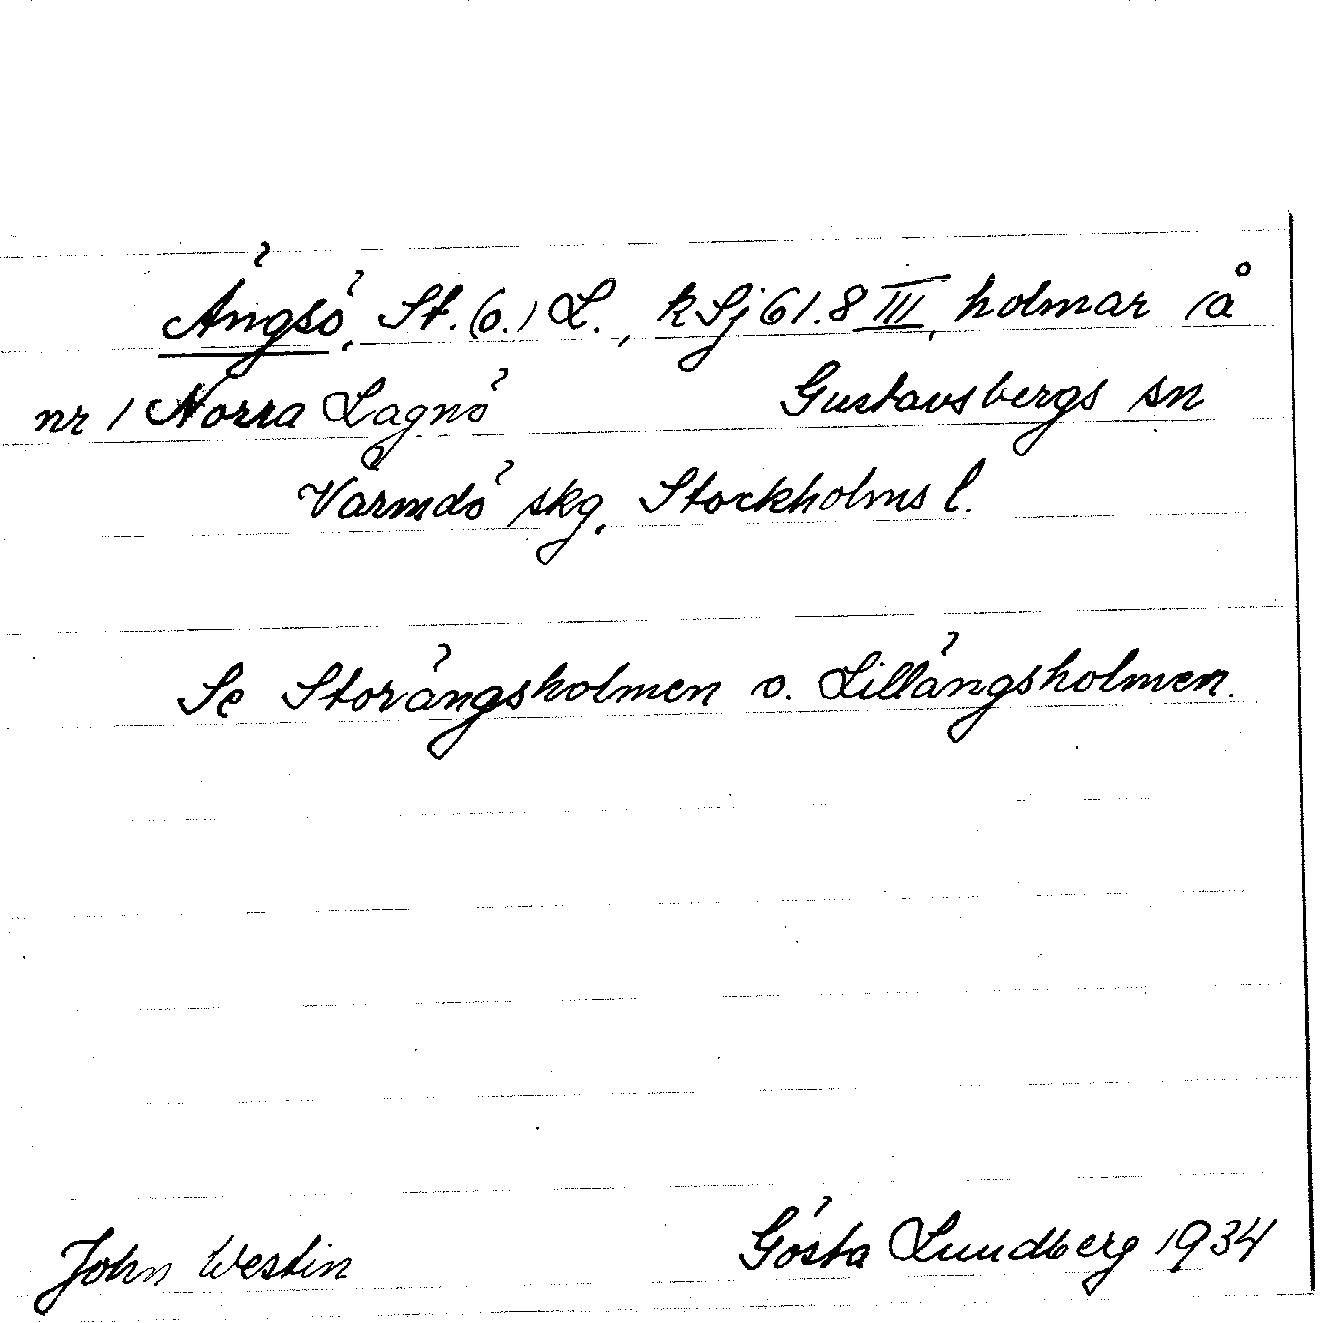 Ängsö, St. (o.) L., kSj61.8 III, holmar /å
nr 1 Norra Lagnö Gustavsbergs sn
Värmdö skg. Stockholms l.
Se Storängsholmen o. Lillängsholmen.
John Westin Gösta Lundberg 1934